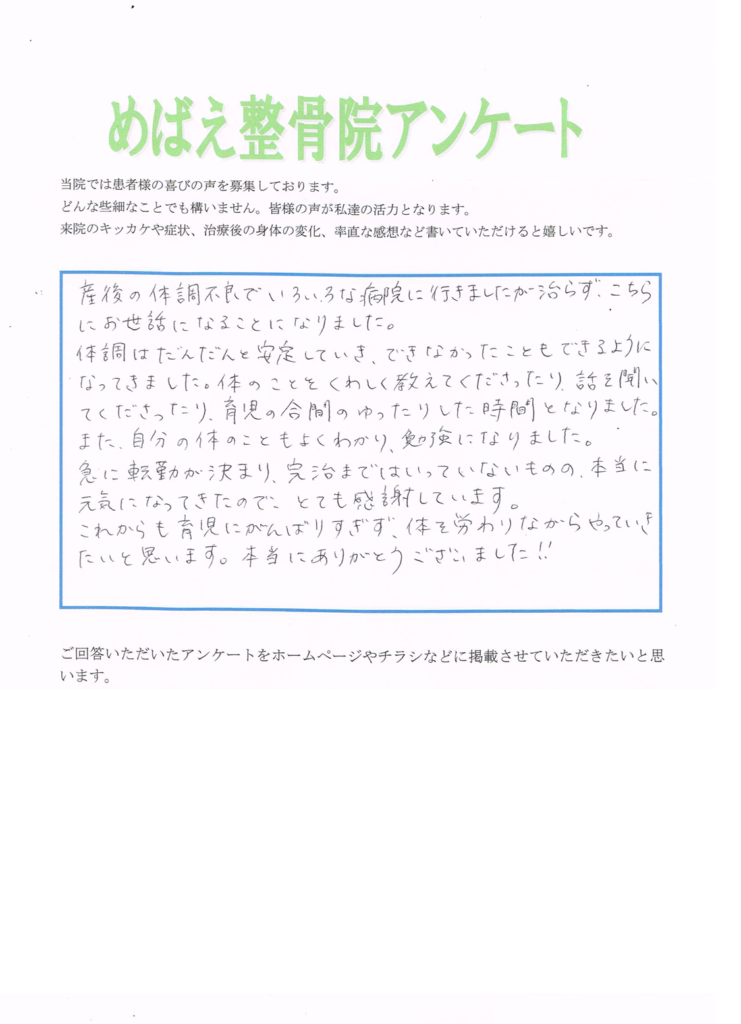 めばえ整骨院アンケート
当院では患者様の喜びの声を募集しております。
どんな些細なことでも構いません。皆様の声が私達の活力となります。
来院のキッカケや症状、治療後の身体の変化、率直な感想など書いていただけると嬉しいです。
産後の体調不良でいろいろな病院に行きましたが治らず、こちら
にお世話になることになりました。
体調はだんだんと安定していき、できなかったこともできるように
なってきました。体のことをくわしく教えてくださったり、話を聞い
てくださったり、育児の合間のゆったりした時間となりました。
また、自分の体のこともよくわかり、勉強になりました。
急に転勤が決まり、完治まではいっていないものの、本当に
元気になってきたので、とても感謝しています。
これからも育児にがんばりすぎず、体を労わりながらやっていき
たいと思います。本当にありがとうございました!!
ご回答いただいたアンケートをホームページやチラシなどに掲載させていただきたいと思
います。